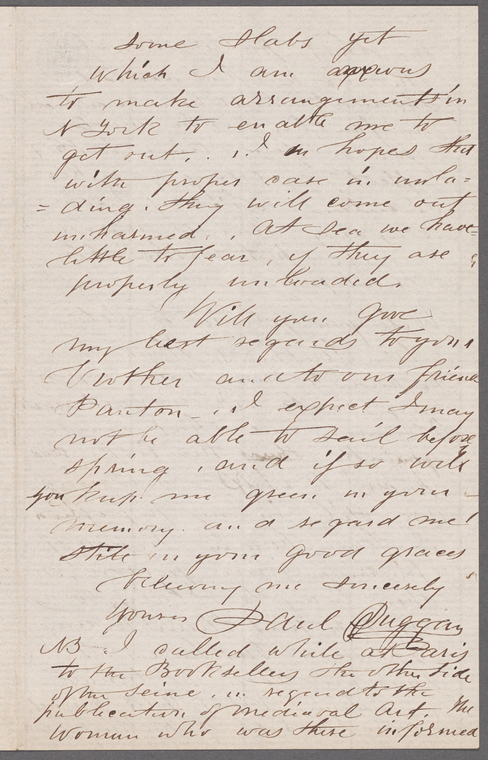 some slabs yet
which I am anxious
to make arrangements in
N York to enable me to
get out. . . I in hopes that
with proper care in unla-
=ding. they will come out
unharmed. . At sea we have
little to fear, if they are
properly unloaded.
Will you give
my best regards to your
brother and to our friend
Panton_ . . I expect I may
not be able to sail before
spring, and if so will
you keep me green in your
memory and regard me
still in your good graces
believing me sincerely
Yours Paul Duggan
NB I called while at Paris
to the Booksellers the other side
of the Seine, in regard to the
publication of mediaeval Art. The
woman who was there informed